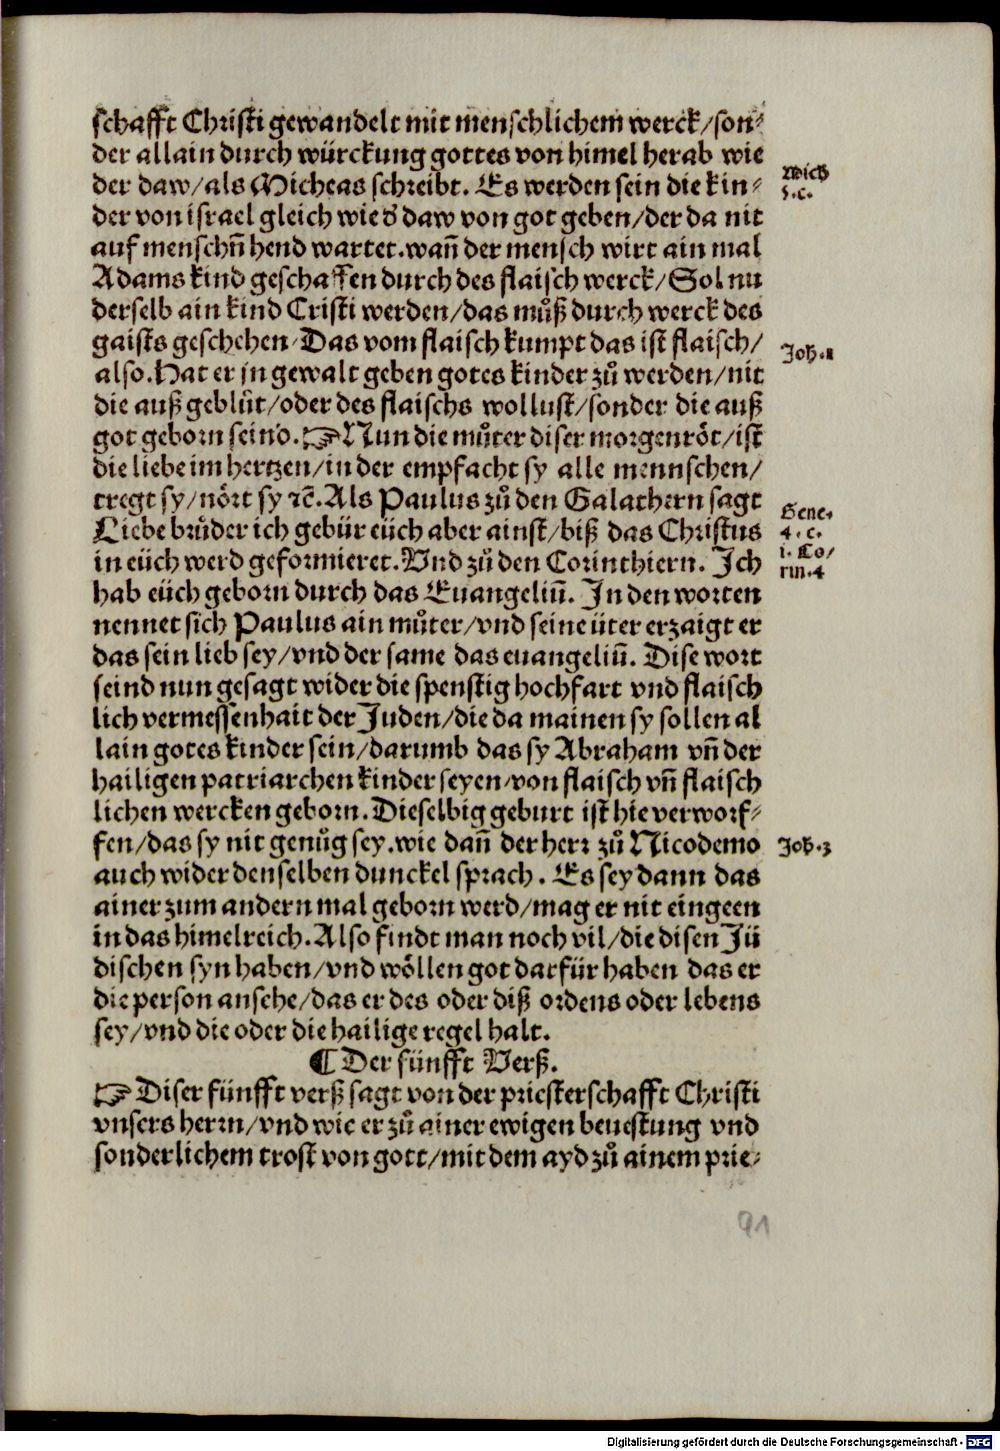 schafft Christi gewandelt mit menschlichem werck/son⸗
der allain durch würckung gottes von himel herab wie
der daw/als Micheas schreibt. Es werden sein die kin⸗
der von israel gleich wie d' daw von got geben/der da nit
auf menschn̄ hend wartet.wañ der mensch wirt ain mal
Adams kind geschaffen durch des flaisch werck/Sol nu
derselb ain kind Cristi werden/das můß durch werck des
gaists geschehen/Das vom flaisch kumpt das ist flaisch/
also.Hat er jn gewalt geben gotes kinder zů werden/nit
die auß geblůt/oder des flaischs wollust/sonder die auß
got geborn seind. ☞Nun die můter diser morgenröt/ist
die liebe im hertzen/in der empfacht sy alle mennschen/
tregt sy/nört sy ⁊c̄.Als Paulus zů den Galathern sagt
Liebe brůder ich gebür eüch aber ainst/biß das Christus
in eüch werd geformieret.Vnd zů den Corinthiern. Ich
hab eüch geborn durch das Euangeliū. In den worten
nennet sich Paulus ain můter/vnd seine üter erzaigt er
das sein lieb sey/vnd der same das euangeliū. Dise wort
seind nun gesagt wider die spenstig hochfart vnd flaisch
lich vermessenhait der Juden/die da mainen sy sollen al
lain gotes kinder sein/darumb das sy Abraham vñ der
hailigen patriarchen kinder seyen/von flaisch vñ flaisch
lichen wercken geborn.Dieselbig geburt ist hie verworf⸗
fen/das sy nit genůg sey.wie dañ der herr zů Nicodemo
auch wider denselben dunckel sprach. Es sey dann das
ainer zum andern mal geborn werd/mag er nit eingeen
in das himelreich.Also findt man noch vil/die disen Jü
dischen syn haben/vnd wöllen got darfür haben das er
die person ansehe/das er des oder diß ordens oder lebens
sey/vnd die oder die hailige regel halt.
¶ Der fünfft Verß.
☞ Diser fünfft verß sagt von der priesterschafft Christi
vnsers herrn/vnd wie er zů ainer ewigen beuestung vnd
sonderlichem trost von gott/mit dem ayd zů ainem prie⸗
Mich
5.c.
Joh.1
Gene.
4.c.
1. Co/
rin.4
Joh.3
91
Digitalisierung gefördert durch die Deutsche Forschungsgemeinschaft - DFG